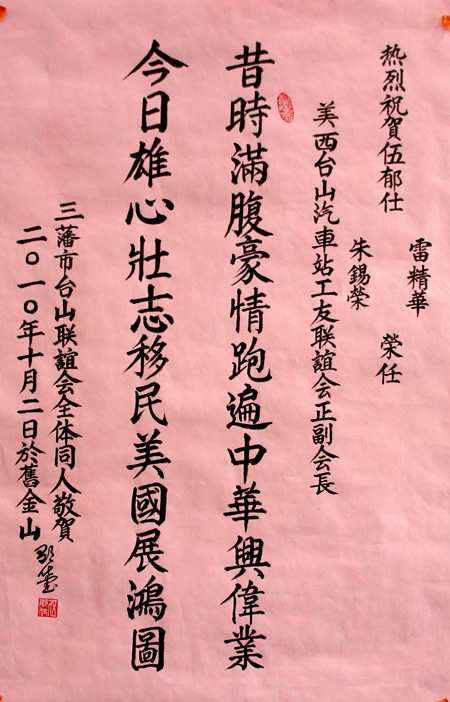 热烈祝贺伍郁仕
雷精華
朱錫榮
榮任
美西台山汽車站工友联誼会正副会長
昔時滿腹豪情跑遍中華興偉業
今日雄心壯志移民美國展鴻圖
三藩市台山联誼会全体同人敬贺
二〇一〇年十月二日於舊金山